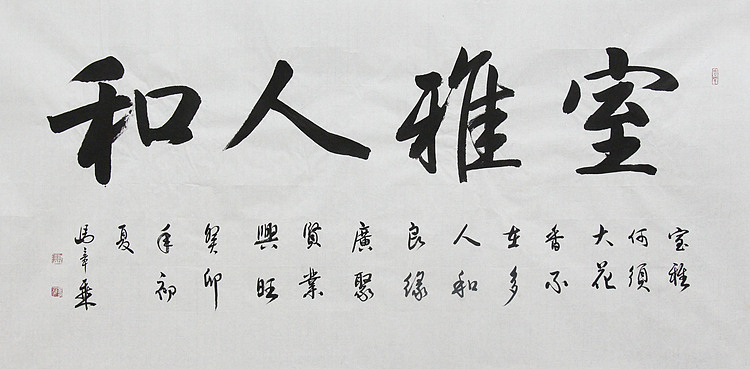 室雅人和
室雅
何須
大花
香不
在多
人和
良緣
廣聚
賢業
興旺
癸卯
年初
夏
馬章乘